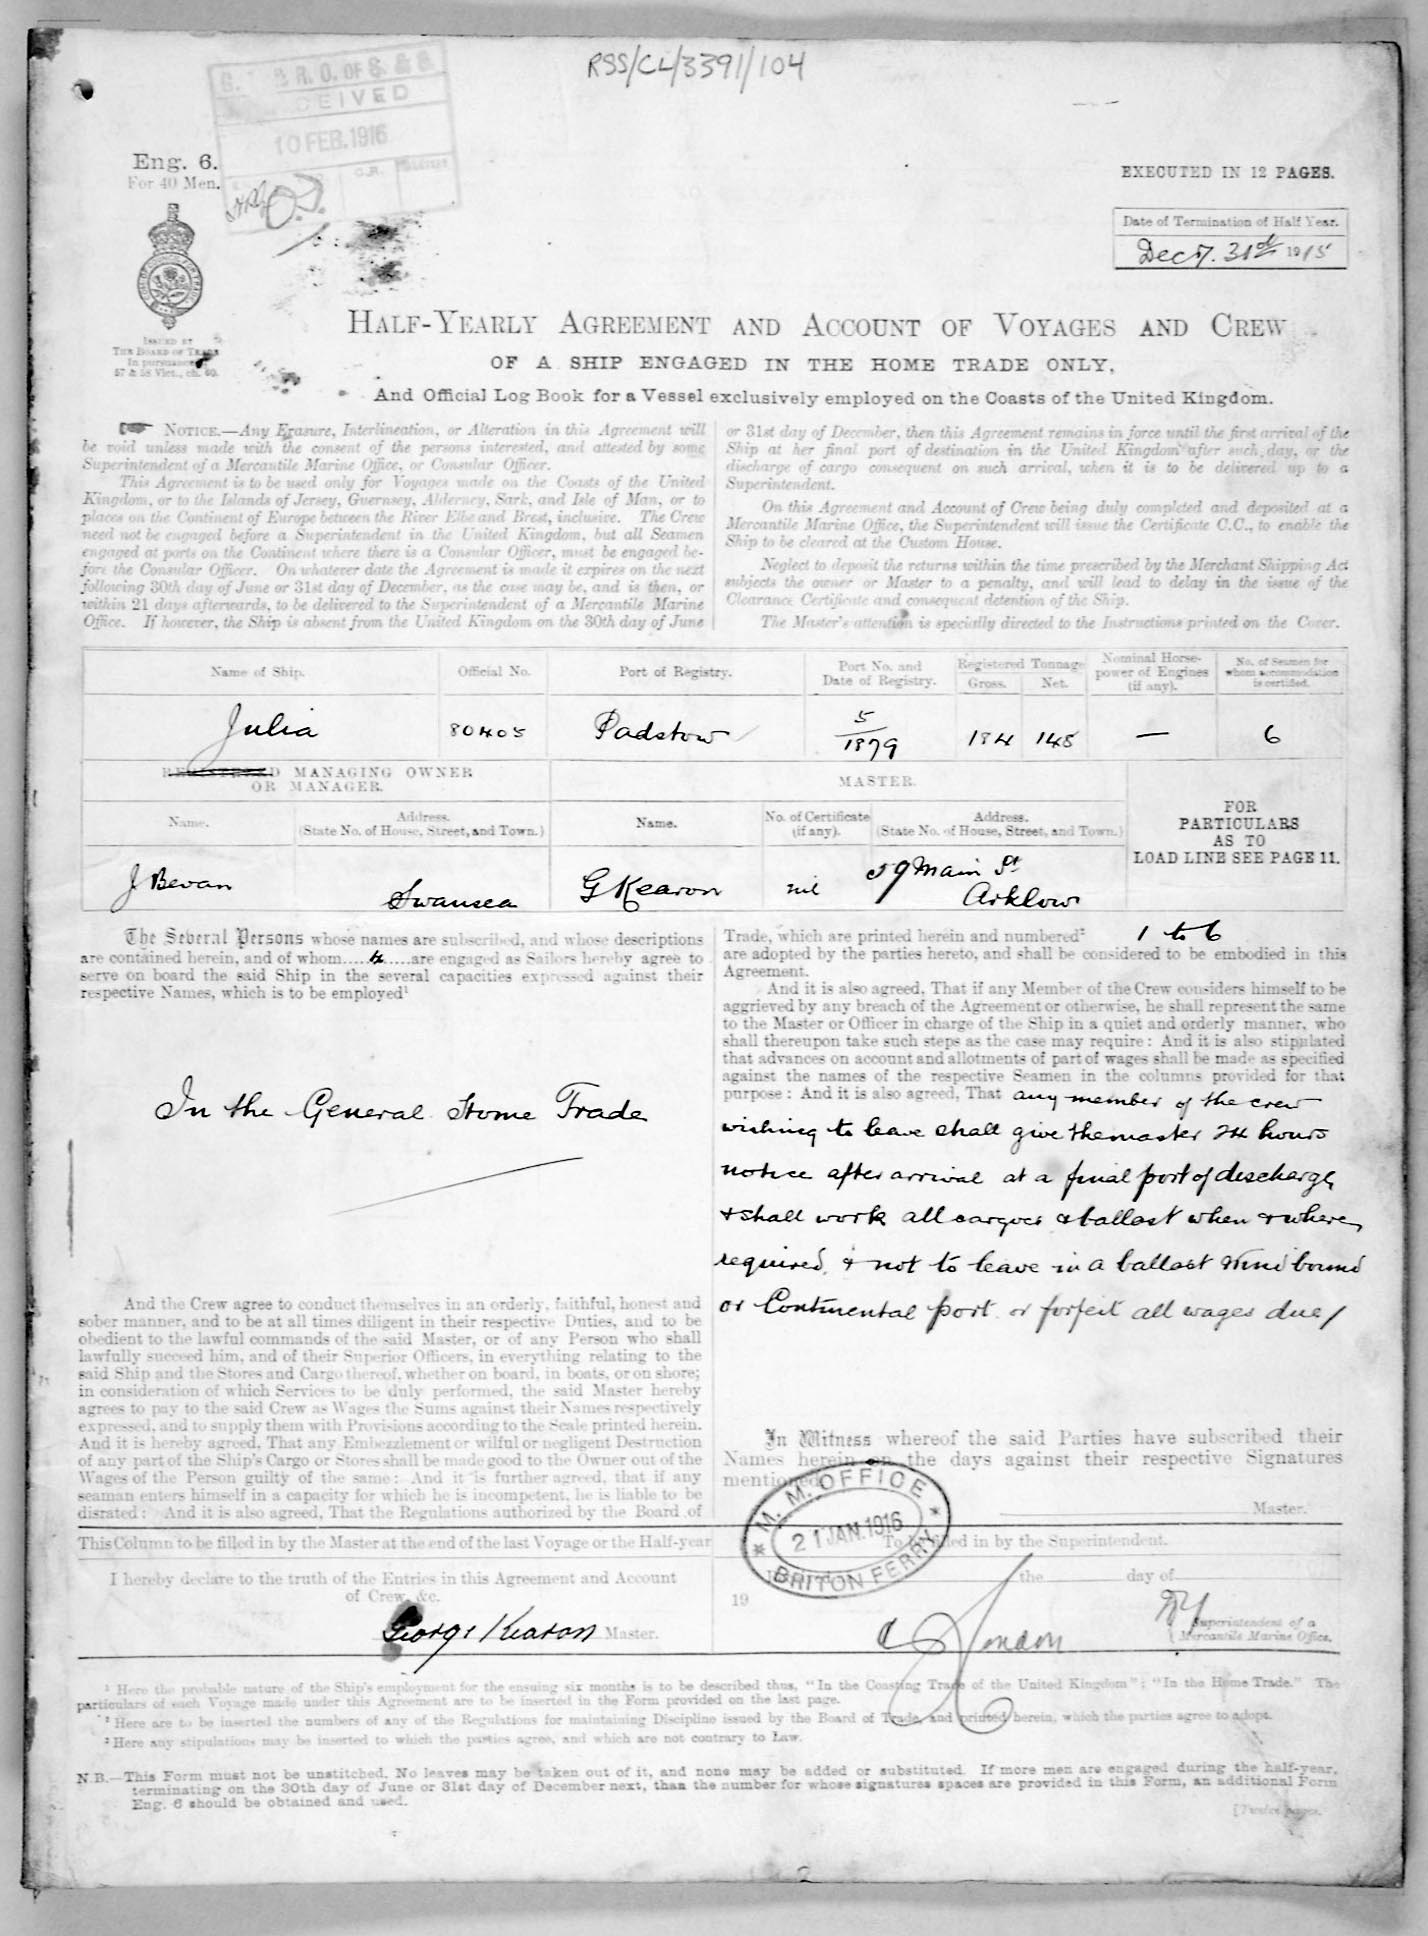 RSS/CL/3391/104
R. O. OF S. & S.
RECEIVED
10 FEB. 1916
Eng. 6.
For 40 Men.
EXECUTED IN 12 PAGES.
Date of Termination of Half Year.
Dec r. 31st 1915
ISSUED BY
THE BOARD OF TRADE
In pursuance of
57 & 58 Vict., ch. 60.
HALF-YEARLY AGREEMENT AND ACCOUNT OF VOYAGES AND CREW
OF A SHIP ENGAGED IN THE HOME TRADE ONLY,
And Official Log Book for a Vessel exclusively employed on the Coasts of the United Kingdom.
NOTICE.—Any Erasure, Interlineation, or Alteration in this Agreement will
be void unless made with the consent of the persons interested, and attested by some
Superintendent of a Mercantile Marine Office, or Consular Officer.
This Agreement is to be used only for Voyages made on the Coasts of the United
Kingdom, or to the Islands of Jersey, Guernsey, Alderney, Sark, and Isle of Man, or to
places on the Continent of Europe between the River Elbe and Brest, inclusive. The Crew
need not be engaged before a Superintendent in the United Kingdom, but all Seamen
engaged at ports on the Continent where there is a Consular Officer, must be engaged be-
fore the Consular Officer. On whatever date the Agreement is made it expires on the next
following 30th day of June or 31st day of December, as the case may be, and is then, or
within 21 days afterwards, to be delivered to the Superintendent of a Mercantile Marine
Office. If however, the Ship is absent from the United Kingdom on the 30th day of June
or 31st day of December, then this Agreement remains in force until the first arrival of the
Ship at her final port of destination in the United Kingdom after such day, or the
discharge of cargo consequent on such arrival, when it is to be delivered up to a
Superintendent.
On this Agreement and Account of Crew being duly completed and deposited at a
Mercantile Marine Office, the Superintendent will issue the Certificate C.C., to enable the
Ship to be cleared at the Custom House.
Neglect to deposit the returns within the time prescribed by the Merchant Shipping Act
subjects the owner or Master to a penalty, and will lead to delay in the issue of the
Clearance Certificate and consequent detention of the Ship.
The Master's attention is specially directed to the Instructions printed on the Cover.
Name of Ship. Official No. Port of Registry. Port No. and Date of Registry. Registered Tonnage Gross. Net. Nominal Horse-power of Engines (if any). No. of Seamen for whom accommodation is certified.
Julia 80405 Padstow 5/1879 184 145 — 6
REGISTERED MANAGING OWNER
OR MANAGER.
MASTER.
Name. Address. (State No. of House, Street, and Town.) Name. No. of Certificate (if any). Address. (State No. of House, Street, and Town.)
FOR
PARTICULARS
AS TO
LOAD LINE SEE PAGE 11.
J Bevan Swansea G Kearon nil 59 Main St
Arklow
The Several Persons whose names are subscribed, and whose descriptions
are contained herein, and of whom....4....are engaged as Sailors hereby agree to
serve on board the said Ship in the several capacities expressed against their
respective Names, which is to be employed¹
In the General Home Trade
And the Crew agree to conduct themselves in an orderly, faithful, honest and
sober manner, and to be at all times diligent in their respective Duties, and to be
obedient to the lawful commands of the said Master, or of any Person who shall
lawfully succeed him, and of their Superior Officers, in everything relating to the
said Ship and the Stores and Cargo thereof, whether on board, in boats, or on shore;
in consideration of which Services to be duly performed, the said Master hereby
agrees to pay to the said Crew as Wages the Sums against their Names respectively
expressed, and to supply them with Provisions according to the Scale printed herein.
And it is hereby agreed, That any Embezzlement or wilful or negligent Destruction
of any part of the Ship's Cargo or Stores shall be made good to the Owner out of the
Wages of the Person guilty of the same: And it is further agreed, that if any
seaman enters himself in a capacity for which he is incompetent, he is liable to be
disrated: And it is also agreed, That the Regulations authorized by the Board of
Trade, which are printed herein and numbered² 1 to 6
are adopted by the parties hereto, and shall be considered to be embodied in this
Agreement.
And it is also agreed, That if any Member of the Crew considers himself to be
aggrieved by any breach of the Agreement or otherwise, he shall represent the same
to the Master or Officer in charge of the Ship in a quiet and orderly manner, who
shall thereupon take such steps as the case may require: And it is also stipulated
that advances on account and allotments of part of wages shall be made as specified
against the names of the respective Seamen in the columns provided for that
purpose: And it is also agreed, That any member of the crew
wishing to leave shall give the master 24 hours
notice after arrival at a final port of discharge
& shall work all cargoes & ballast when & where
required, & not to leave in a ballast wind bound
or Continental port or forfeit all wages due/
In Witness whereof the said Parties have subscribed their
Names herein on the days against their respective Signatures
mentioned.
Master.
This Column to be filled in by the Master at the end of the last Voyage or the Half-year
I hereby declare to the truth of the Entries in this Agreement and Account
of Crew, &c.
George Kearon Master.
M. M. OFFICE
21 JAN. 1916
BRITON FERRY
To be filled in by the Superintendent.
the day of
19
Dy
Superintendent of a
Mercantile Marine Office.
¹ Here the probable nature of the Ship's employment for the ensuing six months is to be described thus, "In the Coasting Trade of the United Kingdom"; "In the Home Trade." The
particulars of each Voyage made under this Agreement are to be inserted in the Form provided on the last page.
² Here are to be inserted the numbers of any of the Regulations for maintaining Discipline issued by the Board of Trade, and printed herein, which the parties agree to adopt.
³ Here any stipulations may be inserted to which the parties agree, and which are not contrary to Law.
N.B.—This Form must not be unstitched. No leaves may be taken out of it, and none may be added or substituted. If more men are engaged during the half-year,
terminating on the 30th day of June or 31st day of December next, than the number for whose signatures spaces are provided in this Form, an additional Form
Eng. 6 should be obtained and used.
[Twelve pages.
2